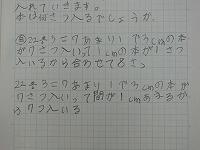 入れていきます。
本は何さつ入るでしょうか。
答 22÷3=7あまり1で3cmの本
が7さつ入って1cmの本が1さつ
入いるから合わせて8さつ。
22÷3=7あまり1で3cmの本が
7さつ入いって間が1cmあるが
7つ入いる